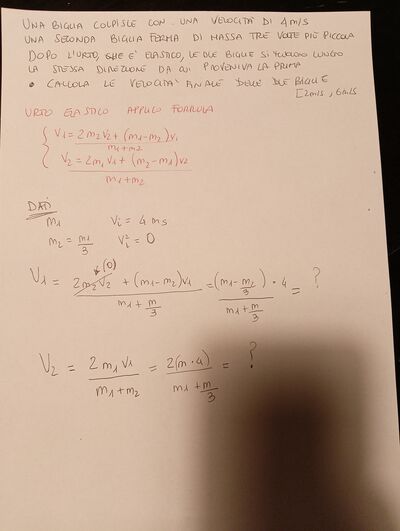 UNA BIGLIA COLPISCE CON UNA VELOCITÀ DI 4 m/s
UNA SECONDA BIGLIA FERMA DI MASSA TRE VOLTE PIÙ PICCOLA
DOPO L'URTO, CHE E' ELASTICO, LE DUE BIGLIE SI MUOVONO LUNGO
LA STESSA DIREZIONE DA CUI PROVENIVA LA PRIMA
• CALCOLA LE VELOCITA' FINALE DELLE DUE BIGLIE
[2m/s, 6m/s
URTO ELASTICO APPLICO FORMULA
{ V1 = 2m2V2 + (m1-m2)v1 / m1+m2
V2 = 2m1V1 + (m2-m1)v2 / m1+m2
DATI
m1 Vi = 4 ms
m2 = m1/3 Vi² = 0
V1 = 2m2V2 (0) + (m1-m2)v1 / m1 + m/3 = (m1 - m2/3) · 4 / m1 + m/3 = ?
V2 = 2m1V1 / m1+m2 = 2(m·4) / m1 + m/3 = ?